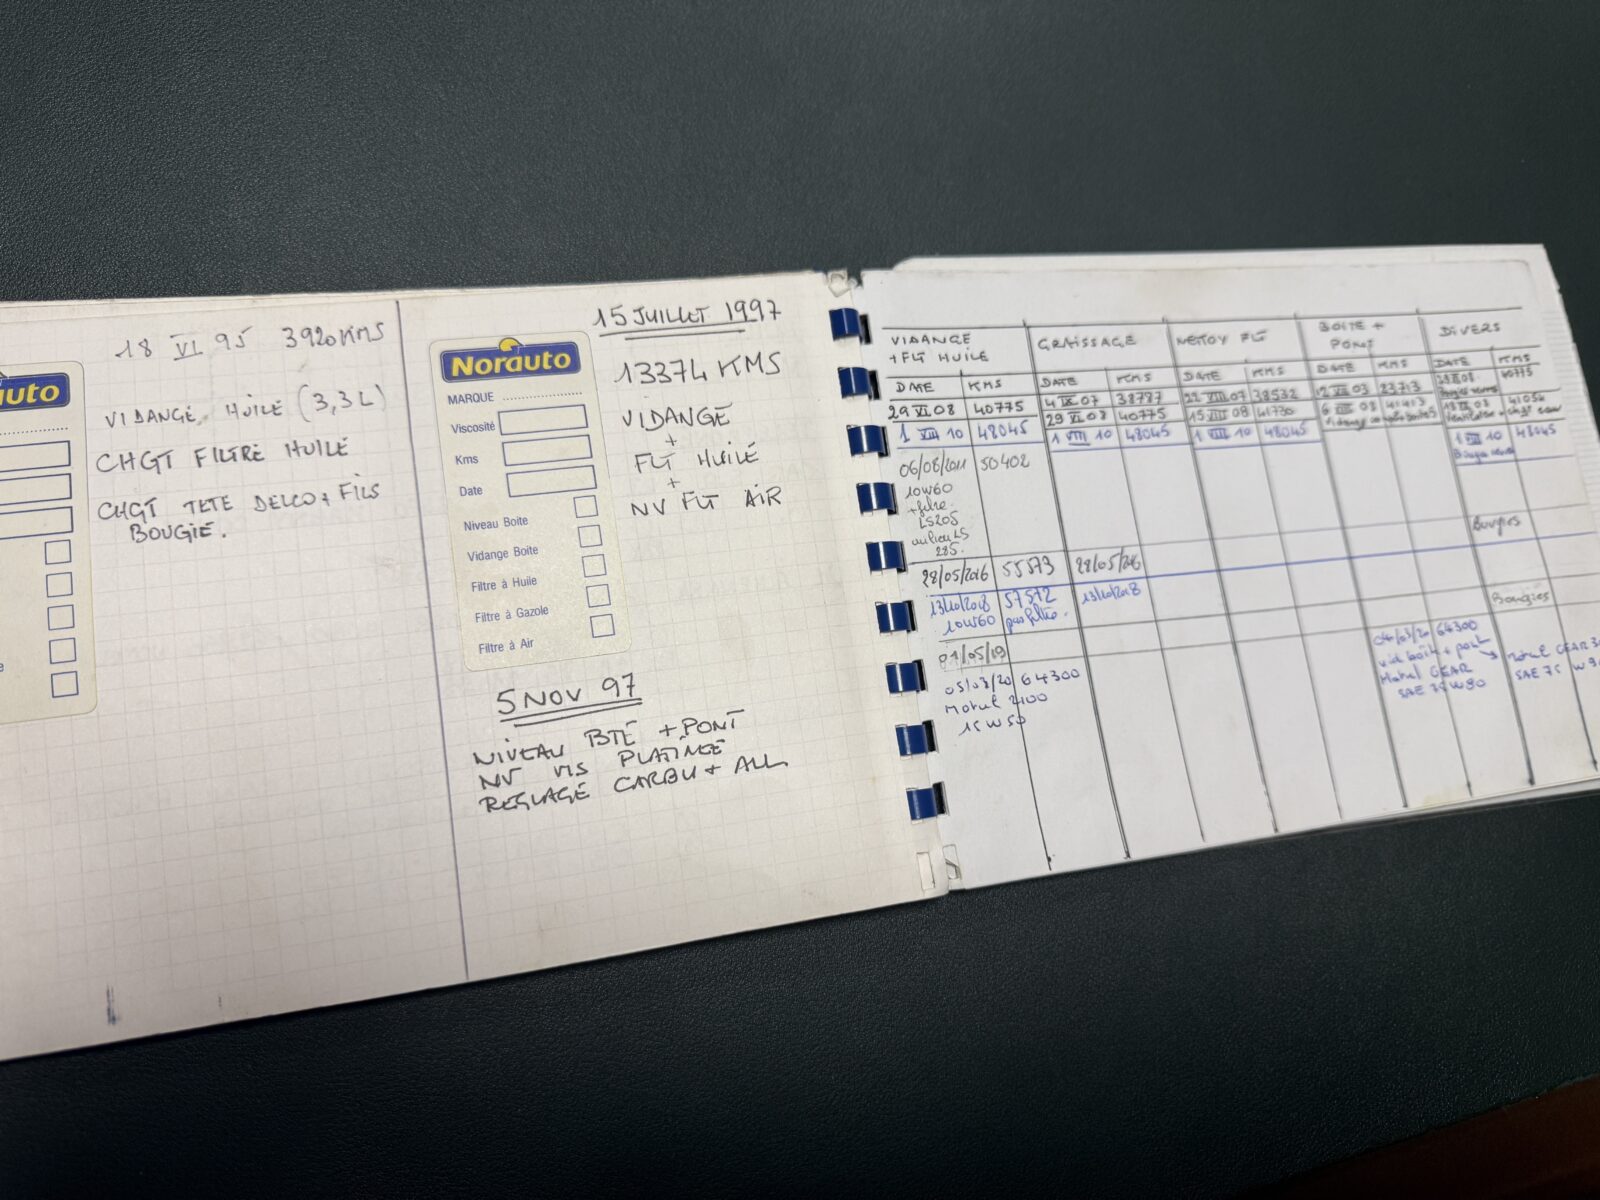 18 VI 95 3920 KMS
VIDANGE HUILE (3,3L)
CHGT FILTRE HUILE
CHGT TETE DELCO + FILS
BOUGIE.
auto
15 JUILLET 1997
Norauto
MARQUE
Viscosité
Kms
Date
Niveau Boite
Vidange Boite
Filtre à Huile
Filtre à Gazole
Filtre à Air
13374 KMS
VIDANGE
+
FLT HUILE
+
NV FLT AIR
5 NOV 97
NIVEAU BTE + PONT
NV VIS PLATINEE
REGLAGE CARBU + ALL
VIDANGE + FLT HUILE
GRAISSAGE
NETTOY FLT
BOITE + PONT
DIVERS
DATE KMS DATE KMS DATE KMS DATE KMS DATE KMS
29 VI 08 40775 4 IX 07 38787 22 VIII 07 38532 12 VII 03 23713 40775
29 VI 08 40775 15 VIII 08 41730 41413 41054
1 VIII 10 48045 1 VIII 10 48045 1 VIII 10 48045 1 VIII 10 48045
06/08/2011 50402
10W60
+ filtre
LS205
au lieu LS
285.
Bougies
28/05/2016 55573 28/05/2016
13/10/2018 57572 13/10/2018
10W60 pas filtre.
Bougies
01/05/19
05/03/20 64300
Motul 2100
15W50
04/03/20 64300
vid boîte + pont
Motul GEAR
SAE 75W90
Motul GEAR
SAE 75 W